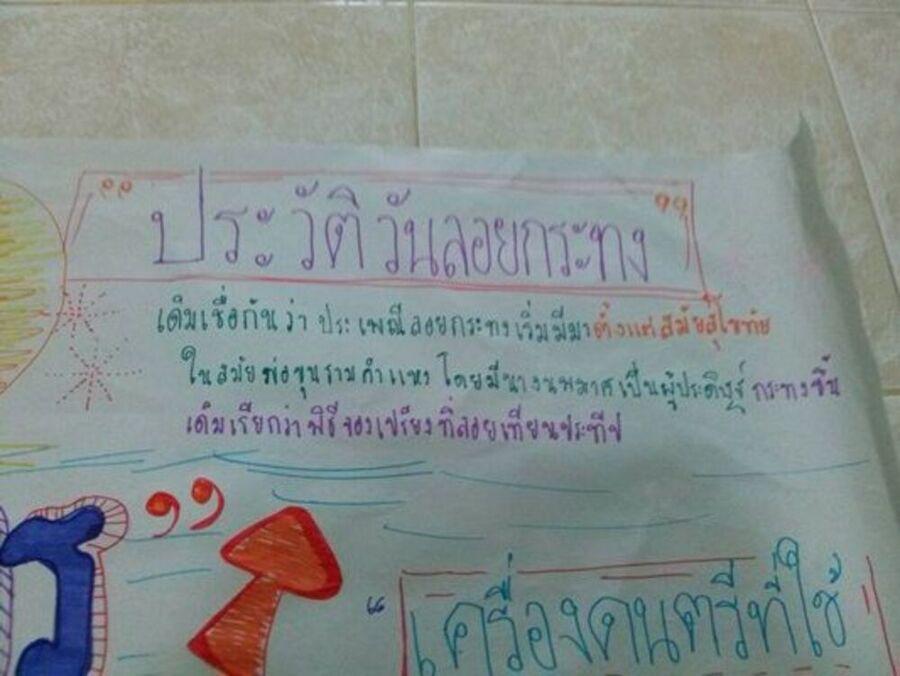 "ประวัติวันลอยกระทง"
เดิมเชื่อกันว่า ประเพณีลอยกระทงเริ่มมีมาตั้งแต่สมัยสุโขทัย
ในสมัยพ่อขุนรามคำแหง โดยมีนางนพมาศเป็นผู้ประดิษฐ์ กระทงขึ้น
เดิมเรียกว่า พิธีจองเปรียง ที่ลอยเทียนประทีป
"เครื่องดนตรีที่ใช้